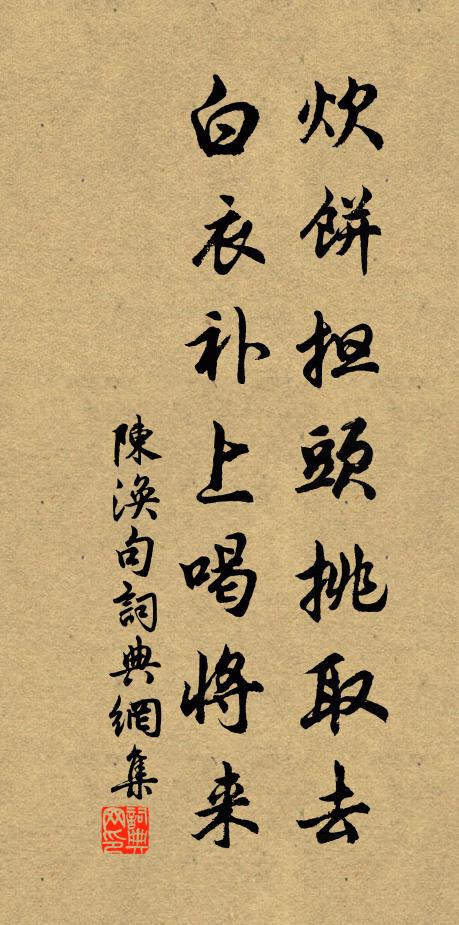 炊餅担頭挑取去
白衣补上喝将来
陳渙句詞典網集
詞典网印